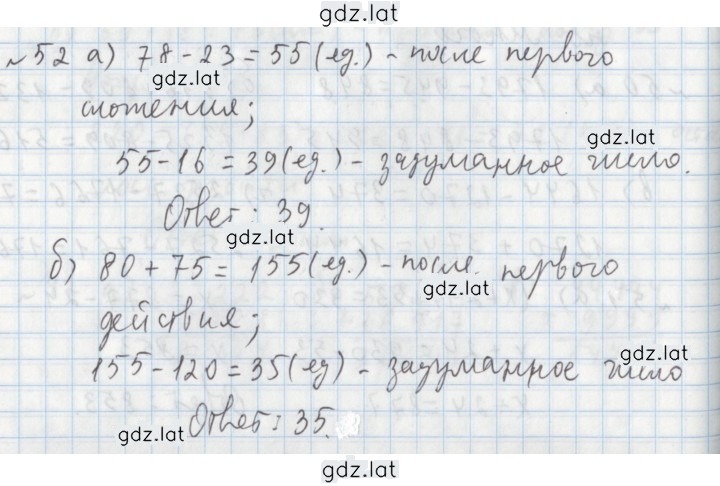 gdz.lat
№52 а) 78-23=55(ед.) - после первого
gdz.lat
сложения;
gdz.lat
55-16=39(ед.) - задуманное число.
Ответ: 39.
gdz.lat
б) 80+75=155(ед.) - после первого
gdz.lat
действия;
gdz.lat
155-120=35(ед) - задуманное число
Ответ: 35.
gdz.lat
gdz.lat